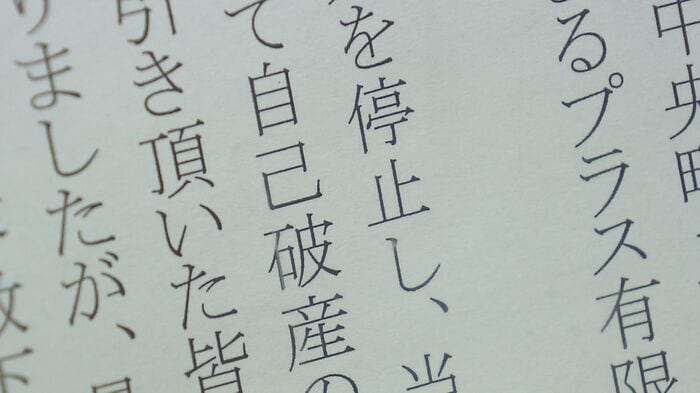 中央町
るプラス有限
を停止し、当
て自己破産の
引き頂いた皆
りましたが、